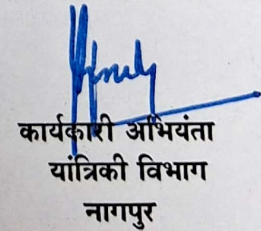 कार्यकारी अभियंता
यांत्रिकी विभाग
नागपुर